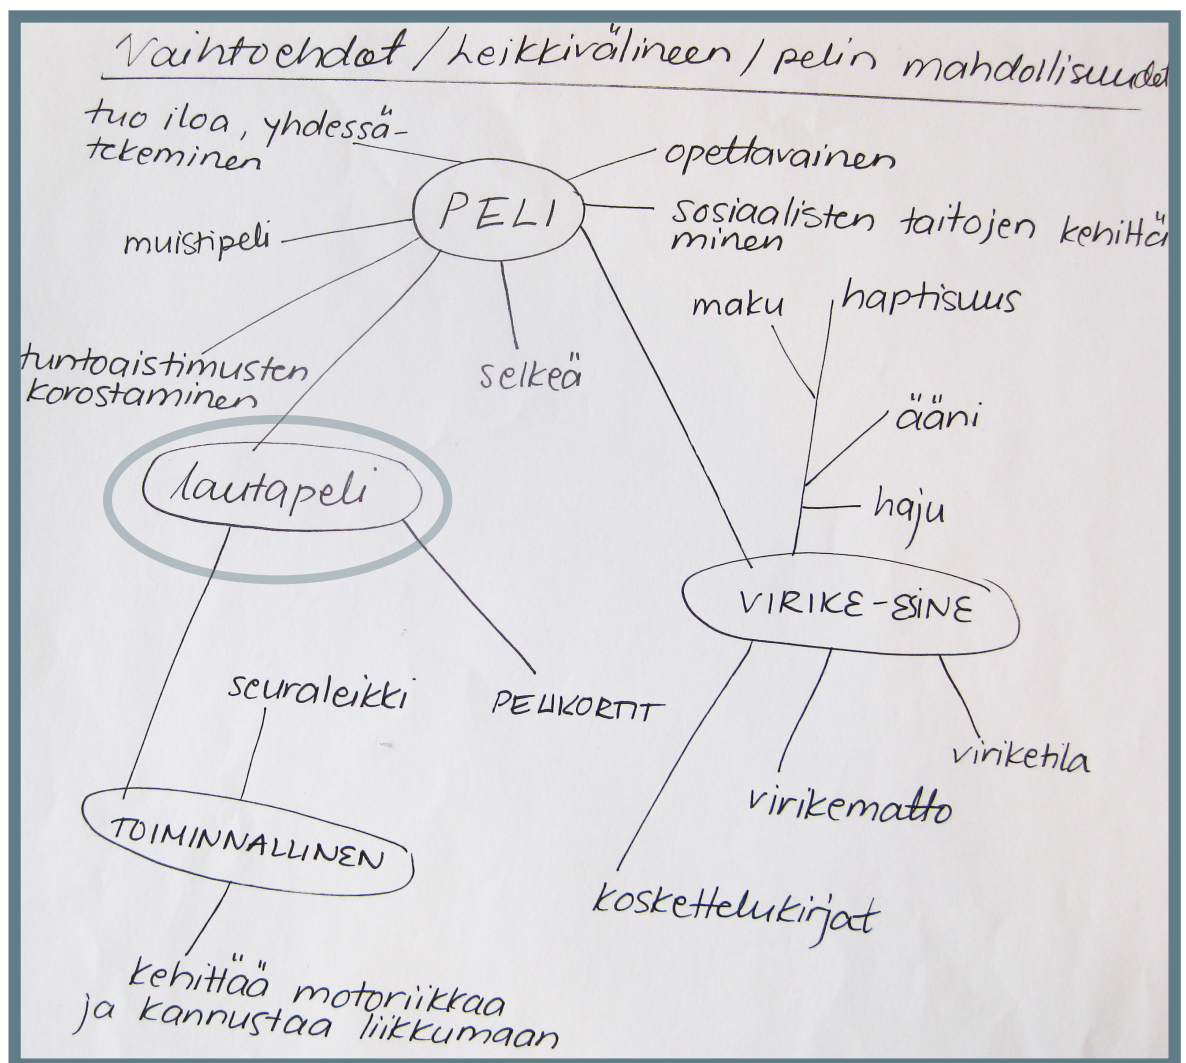 Vaihtoehdot / leikkivälineen / pelin mahdollisuudet
tuo iloa, yhdessä-
tekeminen
opettavainen
PELI
sosiaalisten taitojen kehittä
minen
muistipeli
maku
haptisuus
tuntoaistimusten
korostaminen
selkeä
ääni
lautapeli
haju
VIRIKE-ESINE
seuraleikki
PELIKORTIT
viriketila
virikematto
TOIMINNALLINEN
koskettelukirjat
kehittää motoriikkaa
ja kannustaa liikkumaan